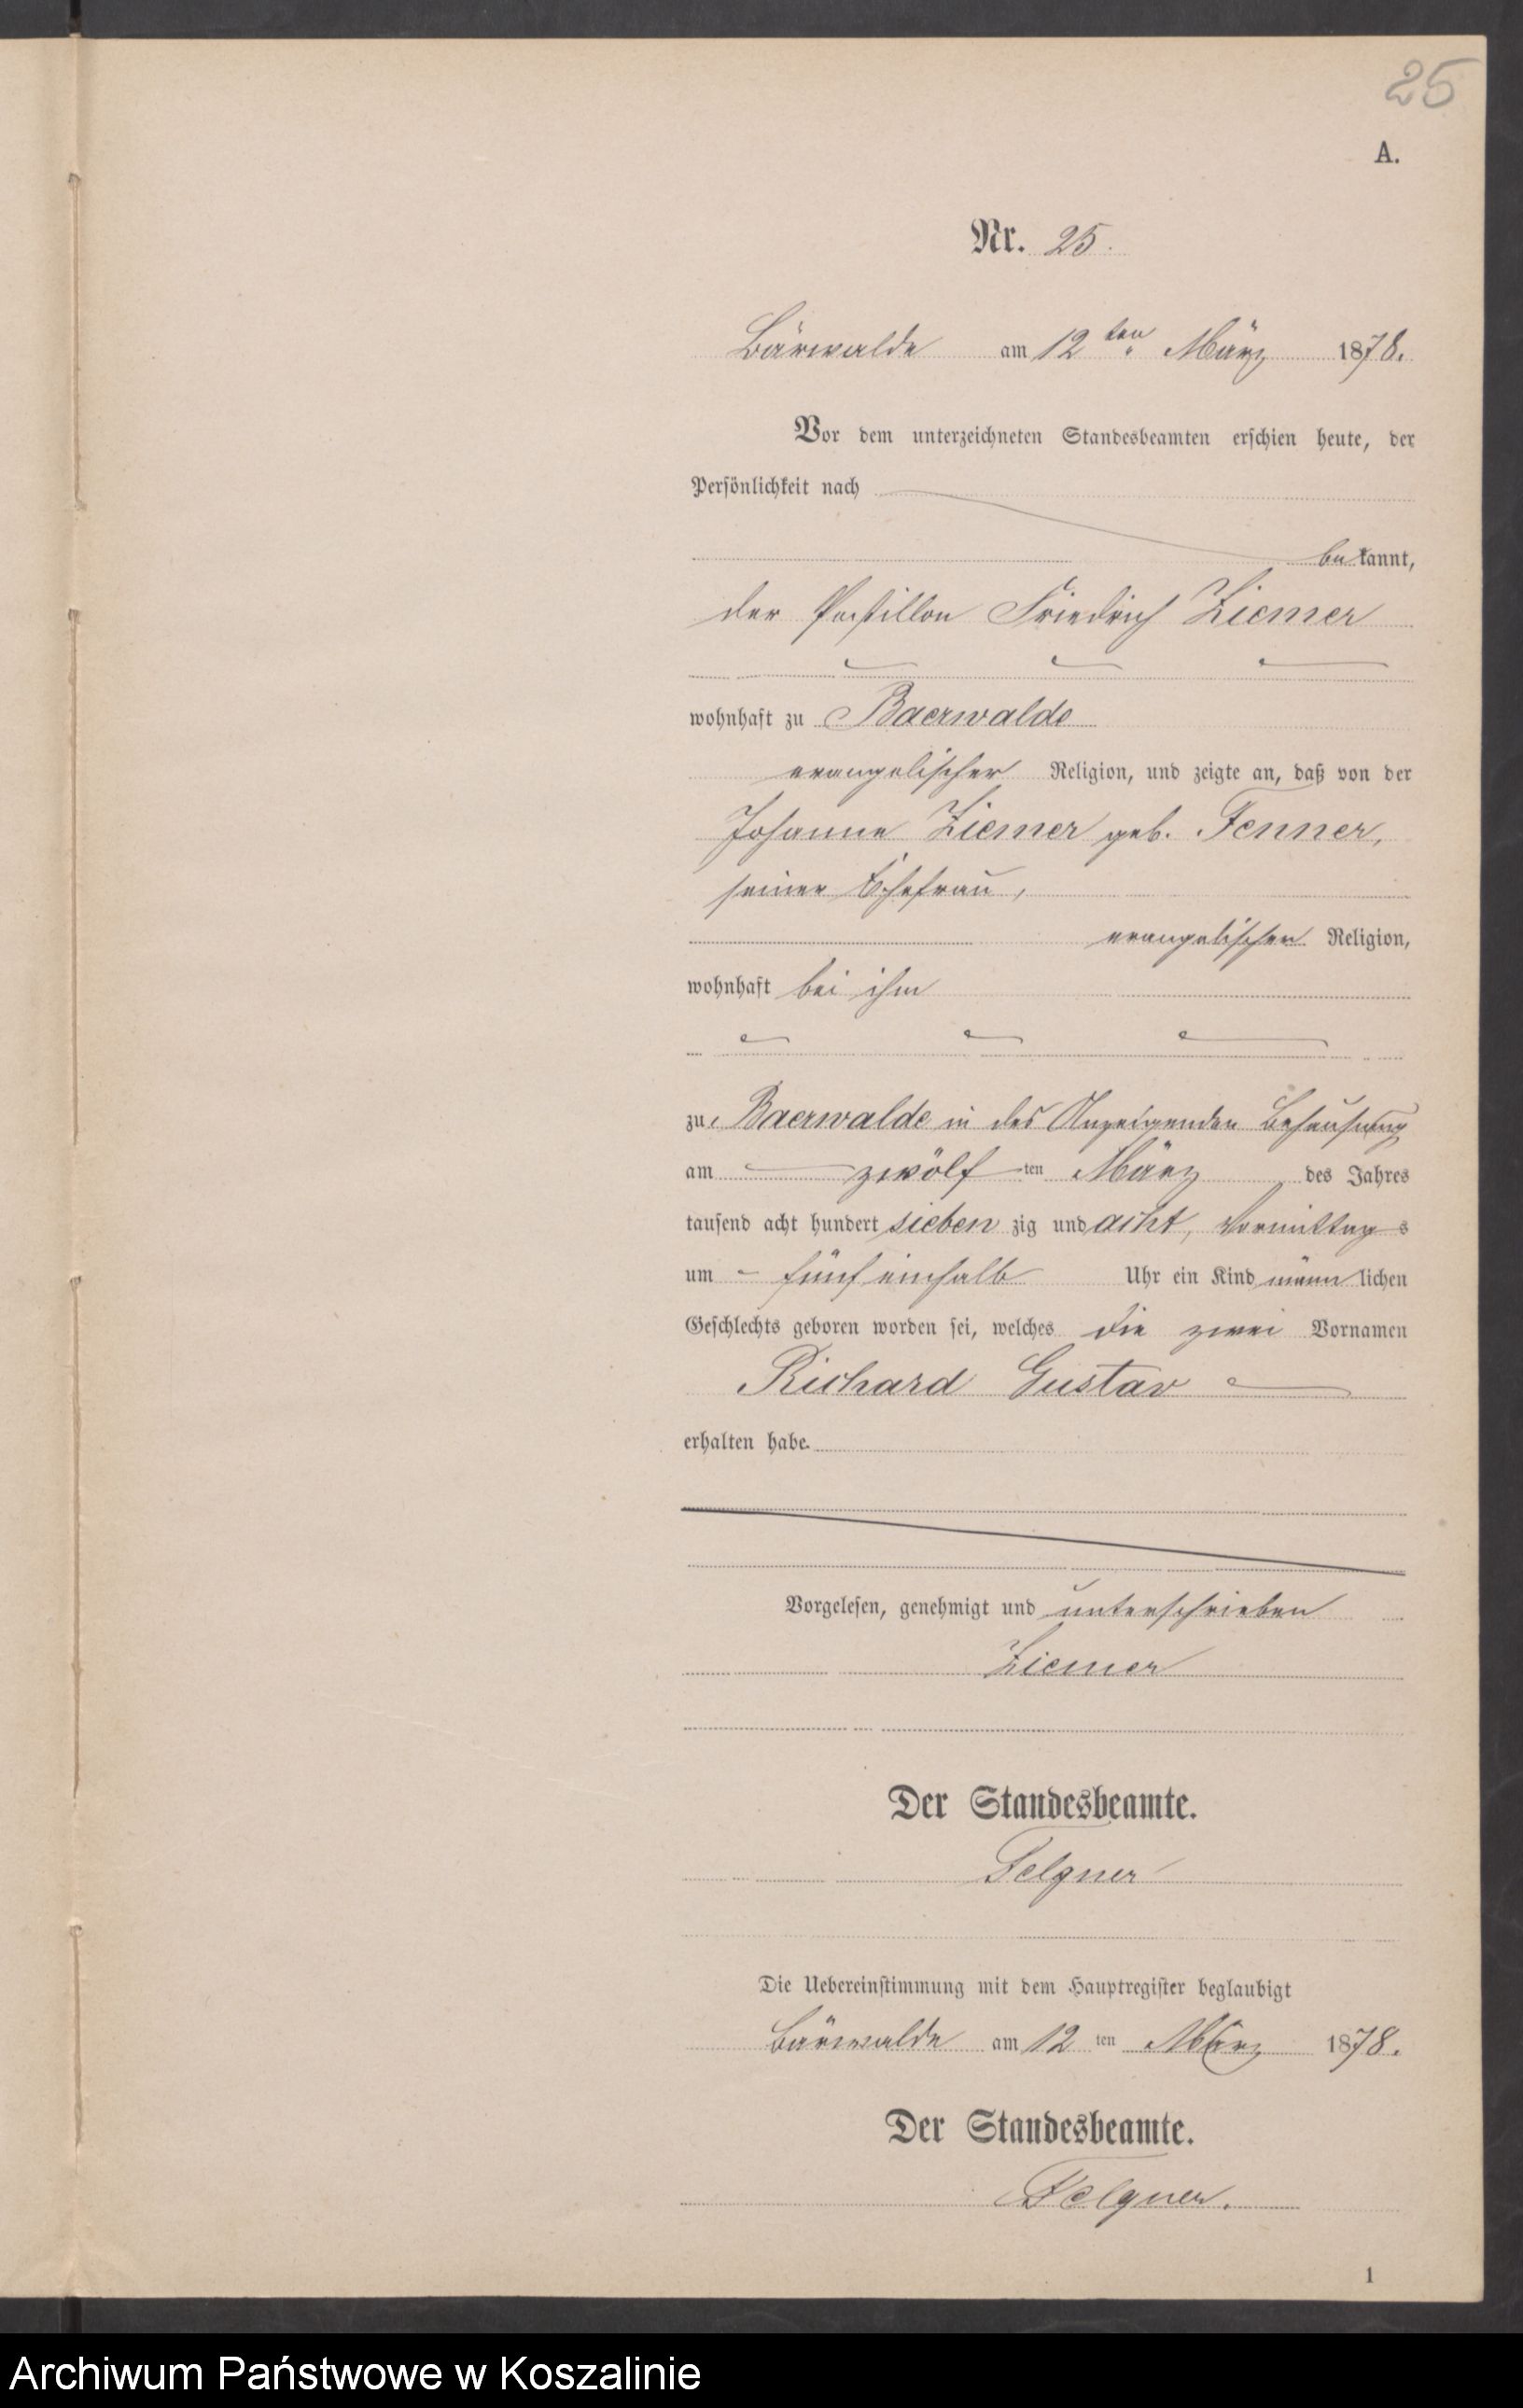 25
A.
Nr. 25.
Bärwalde am 12ten März 1878.
Vor dem unterzeichneten Standesbeamten erschien heute, der
Persönlichkeit nach
bekannt,
der Postillon Friedrich Ziemer
wohnhaft zu Baerwalde
evangelischer Religion, und zeigte an, daß von der
Johanne Ziemer geb. Fenner,
seiner Ehefrau,
evangelischer Religion,
wohnhaft bei ihm
zu Baerwalde in des Anzeigenden Behausung
am zwölf ten März des Jahres
tausend acht hundert sieben zig und acht, Vormittags
um fünf einhalb Uhr ein Kind männlichen
Geschlechts geboren worden sei, welches die zwei Vornamen
Richard Gustav
erhalten habe.
Vorgelesen, genehmigt und unterschrieben
Ziemer
Der Standesbeamte.
Felgner
Die Uebereinstimmung mit dem Hauptregister beglaubigt
Bärwalde am 12 ten März 1878.
Der Standesbeamte.
Felgner.
1
Archiwum Państwowe w Koszalinie